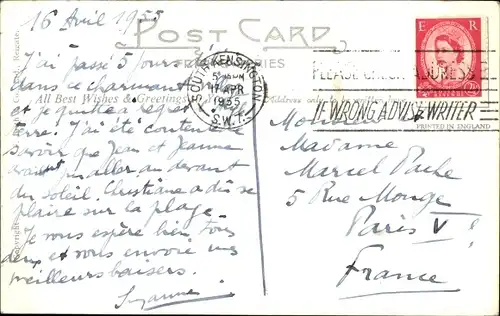 16 Avril 1955
POST CARD
J'ai passé 5 jours
dans ce charmant
et je quitte à regret
All Best Wishes & Greetings
Address only
J'ai été contente
savoir que Jean et Jeanne
avaient pu aller au devant
du soleil. Christiane a dû se
plaire sur la plage.
Je vous espère bien tous
deux et vous envoie mes
meilleurs baisers.
Suzanne
SOUTH KENSINGTON
17 APR
1955
S.W.7.
PLEASE CHECK ADDRESS
IF WRONG ADVISE WRITER
E R
2½
PRINTED IN ENGLAND
Madame
Marcel Pache
5 Rue Monge
Paris V
France